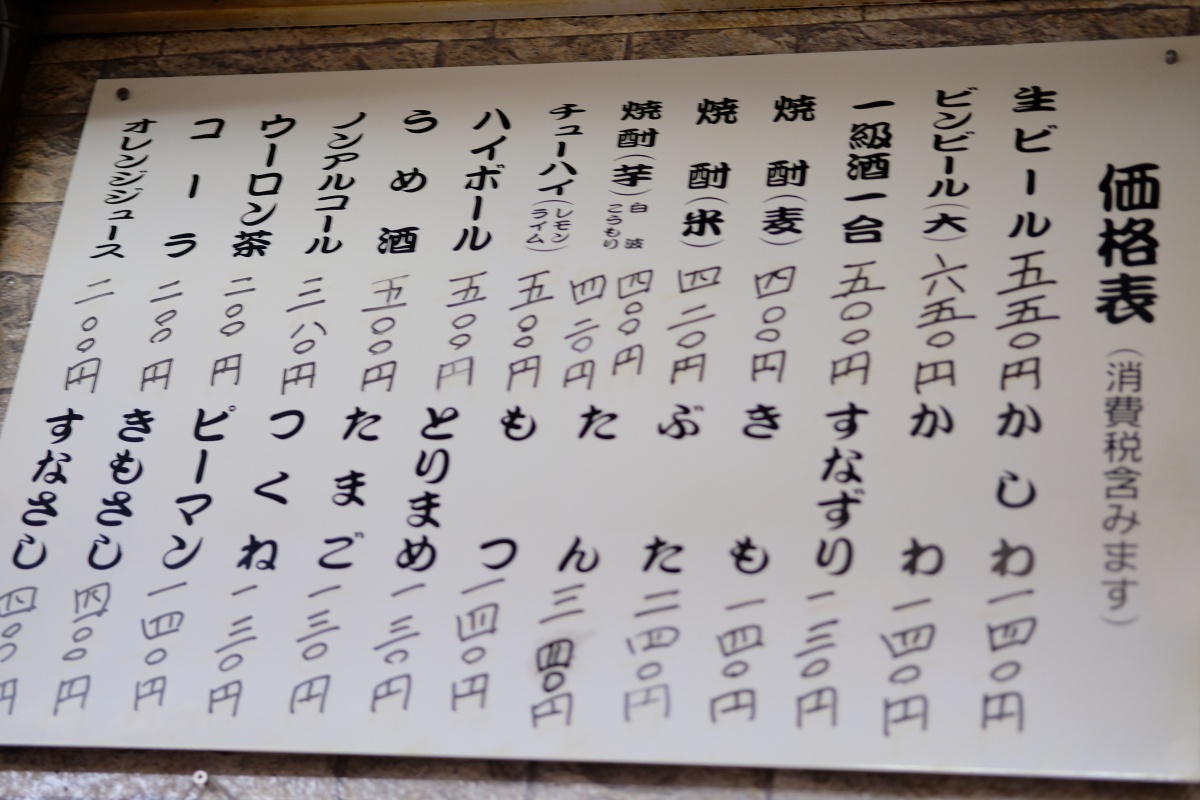 価格表（消費税含みます）
生ビール 五五〇円
ビンビール（大） 六五〇円
一級酒一合 五〇〇円
焼酎（麦） 四〇〇円
焼酎（米） 四二〇円
焼酎（芋）白波 四〇〇円
こうもり 四二〇円
チューハイ（レモンライム） 五〇〇円
ハイボール 五〇〇円
うめ酒 五〇〇円
ノンアルコール 三八〇円
ウーロン茶 二〇〇円
コーラ 二〇〇円
オレンジジュース 二〇〇円
かしわ 一四〇円
かわ 一四〇円
すなずり 一三〇円
きも 一四〇円
ぶた 二四〇円
たん 三四〇円
もつ 一四〇円
とりまめ 一三〇円
たまご 一三〇円
つくね 一三〇円
ピーマン 一四〇円
きもさし 四〇〇円
すなさし 四〇〇円